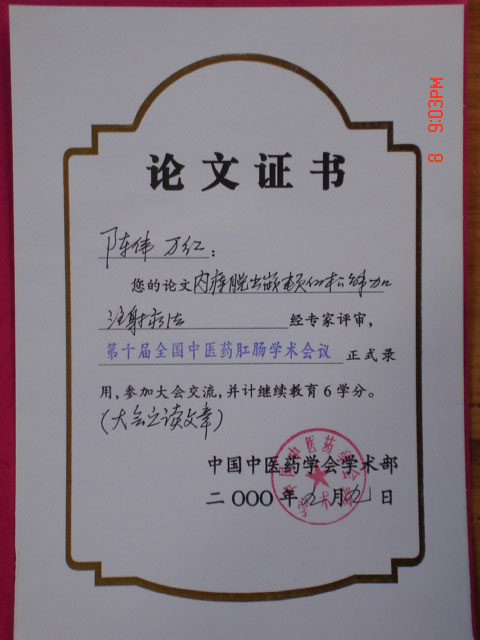 论文证书
陈伟 万红：
您的论文内痔脱出嵌顿的松解加
注射疗法 经专家评审，
第十届全国中医药肛肠学术会议 正式录
用，参加大会交流，并计继续教育6学分。
（大会宣读文章）
中国中医药学会学术部
二000年九月九日
8 9:03PM